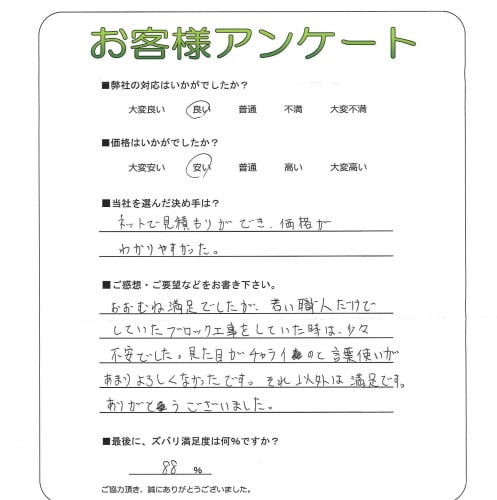 お客様アンケート
■弊社の対応はいかがでしたか?
大変良い 良い 普通 不満 大変不満
■価格はいかがでしたか?
大変安い 安い 普通 高い 大変高い
■当社を選んだ決め手は?
ネットで見積もりができ、価格が
わかりやすかった。
■ご感想・ご要望などをお書き下さい。
おおむね満足でしたが、若い職人だけで
していたブロック工事をしていた時は、少々
不安でした。見た目がチャライのと言葉使いが
あまりよろしくなかったです。それ以外は満足です。
ありがとうございました。
■最後に、ズバリ満足度は何%ですか?
88 %
ご協力頂き、誠にありがとうございました。